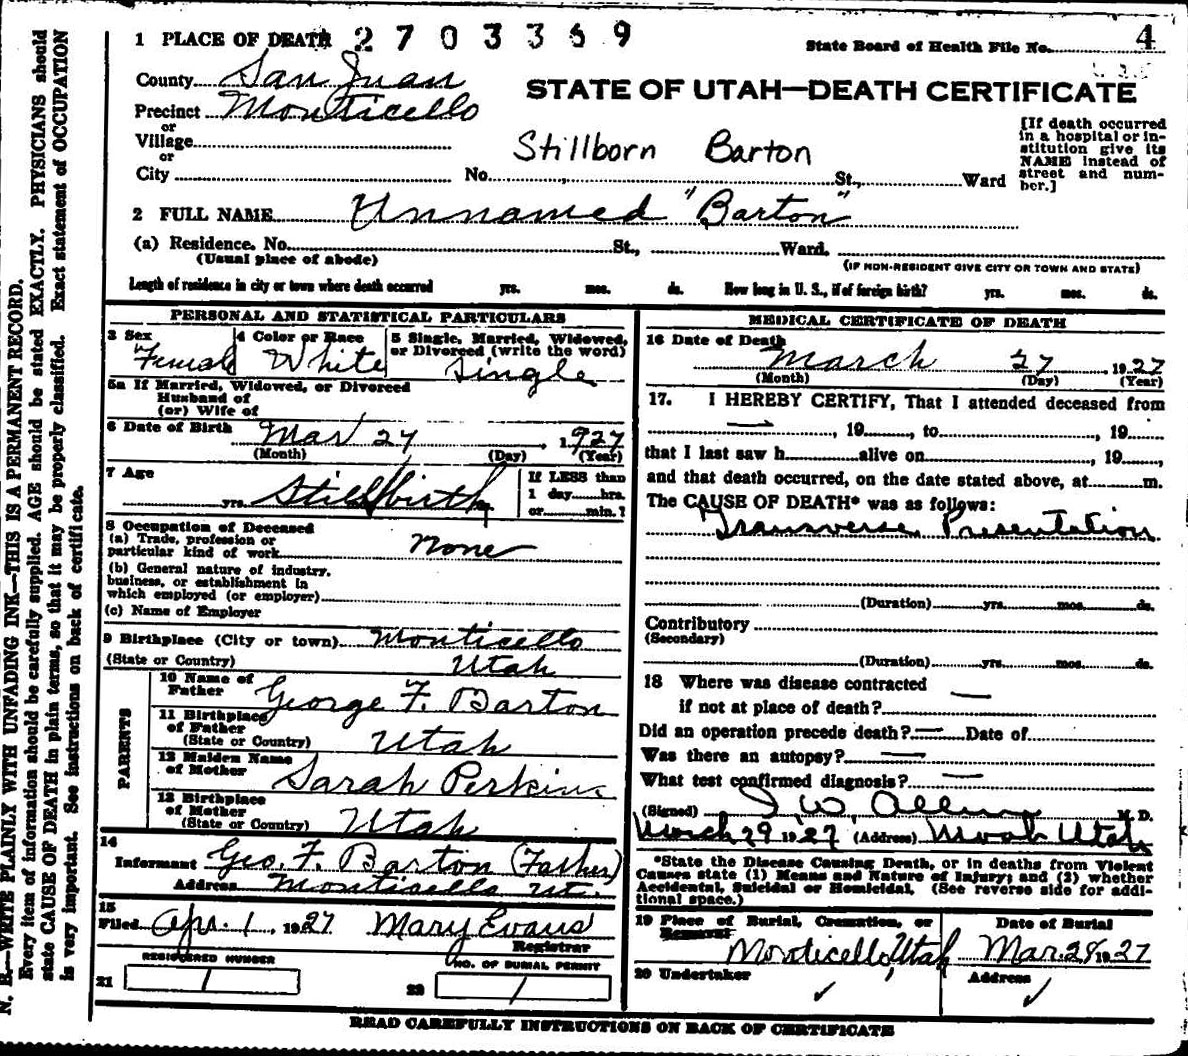 1 PLACE OF DEATH 2703369
State Board of Health File No. 4
County San Juan
STATE OF UTAH—DEATH CERTIFICATE
Precinct Monticello
or
Village
or
City No. St., Ward
Stillborn Barton
[If death occurred
in a hospital or in-
stitution give its
NAME instead of
street and num-
ber.]
2 FULL NAME Unnamed "Barton"
(a) Residence. No. St., Ward.
(Usual place of abode)
(IF NON-RESIDENT GIVE CITY OR TOWN AND STATE)
Length of residence in city or town where death occurred yrs. mos. ds. How long in U. S., if of foreign birth? yrs. mos. ds.
PERSONAL AND STATISTICAL PARTICULARS
3 Sex 4 Color or Race 5 Single, Married, Widowed,
or Divorced (write the word)
Female White Single
5a If Married, Widowed, or Divorced
Husband of
(or) Wife of
6 Date of Birth Mar 27, 1927
(Month) (Day) (Year)
7 Age
If LESS than
yrs. Stillbirth 1 day hrs.
or min.?
8 Occupation of Deceased
(a) Trade, profession or
particular kind of work None
(b) General nature of industry,
business, or establishment in
which employed (or employer)
(c) Name of Employer
9 Birthplace (City or town) Monticello
(State or Country) Utah
PARENTS
10 Name of
Father George F. Barton
11 Birthplace
of Father
(State or Country) Utah
12 Maiden Name
of Mother Sarah Perkins
13 Birthplace
of Mother
(State or Country) Utah
14
Informant Geo. F. Barton (Father)
Address Monticello Ut.
15
Filed Apr. 1, 1927 Mary Evans
Registrar
REGISTERED NUMBER NO. OF BURIAL PERMIT
21 1 22 1
MEDICAL CERTIFICATE OF DEATH
16 Date of Death
March 27, 1927
(Month) (Day) (Year)
17. I HEREBY CERTIFY, That I attended deceased from
— , 19 , to , 19
that I last saw h alive on , 19 ,
and that death occurred, on the date stated above, at m.
The CAUSE OF DEATH* was as follows:
Transverse Presentation
(Duration) yrs. mos. ds.
Contributory
(Secondary)
(Duration) yrs. mos. ds.
18 Where was disease contracted
if not at place of death? —
Did an operation precede death? — Date of
Was there an autopsy? —
What test confirmed diagnosis? —
(Signed) I. W. Allen M. D.
March 29 1927 (Address) Moab Utah
*State the Disease Causing Death, or in deaths from Violent
Causes state (1) Means and Nature of Injury; and (2) whether
Accidental, Suicidal or Homicidal. (See reverse side for addi-
tional space.)
19 Place of Burial, Cremation, or
Removal
Date of Burial
Monticello, Utah Mar. 28 1927
20 Undertaker Address
✓ ✓
READ CAREFULLY INSTRUCTIONS ON BACK OF CERTIFICATE
N. B.—WRITE PLAINLY WITH UNFADING INK—THIS IS A PERMANENT RECORD.
Every item of information should be carefully supplied. AGE should be stated EXACTLY. PHYSICIANS should
state CAUSE OF DEATH in plain terms, so that it may be properly classified. Exact statement of OCCUPATION
is very important. See instructions on back of certificate.